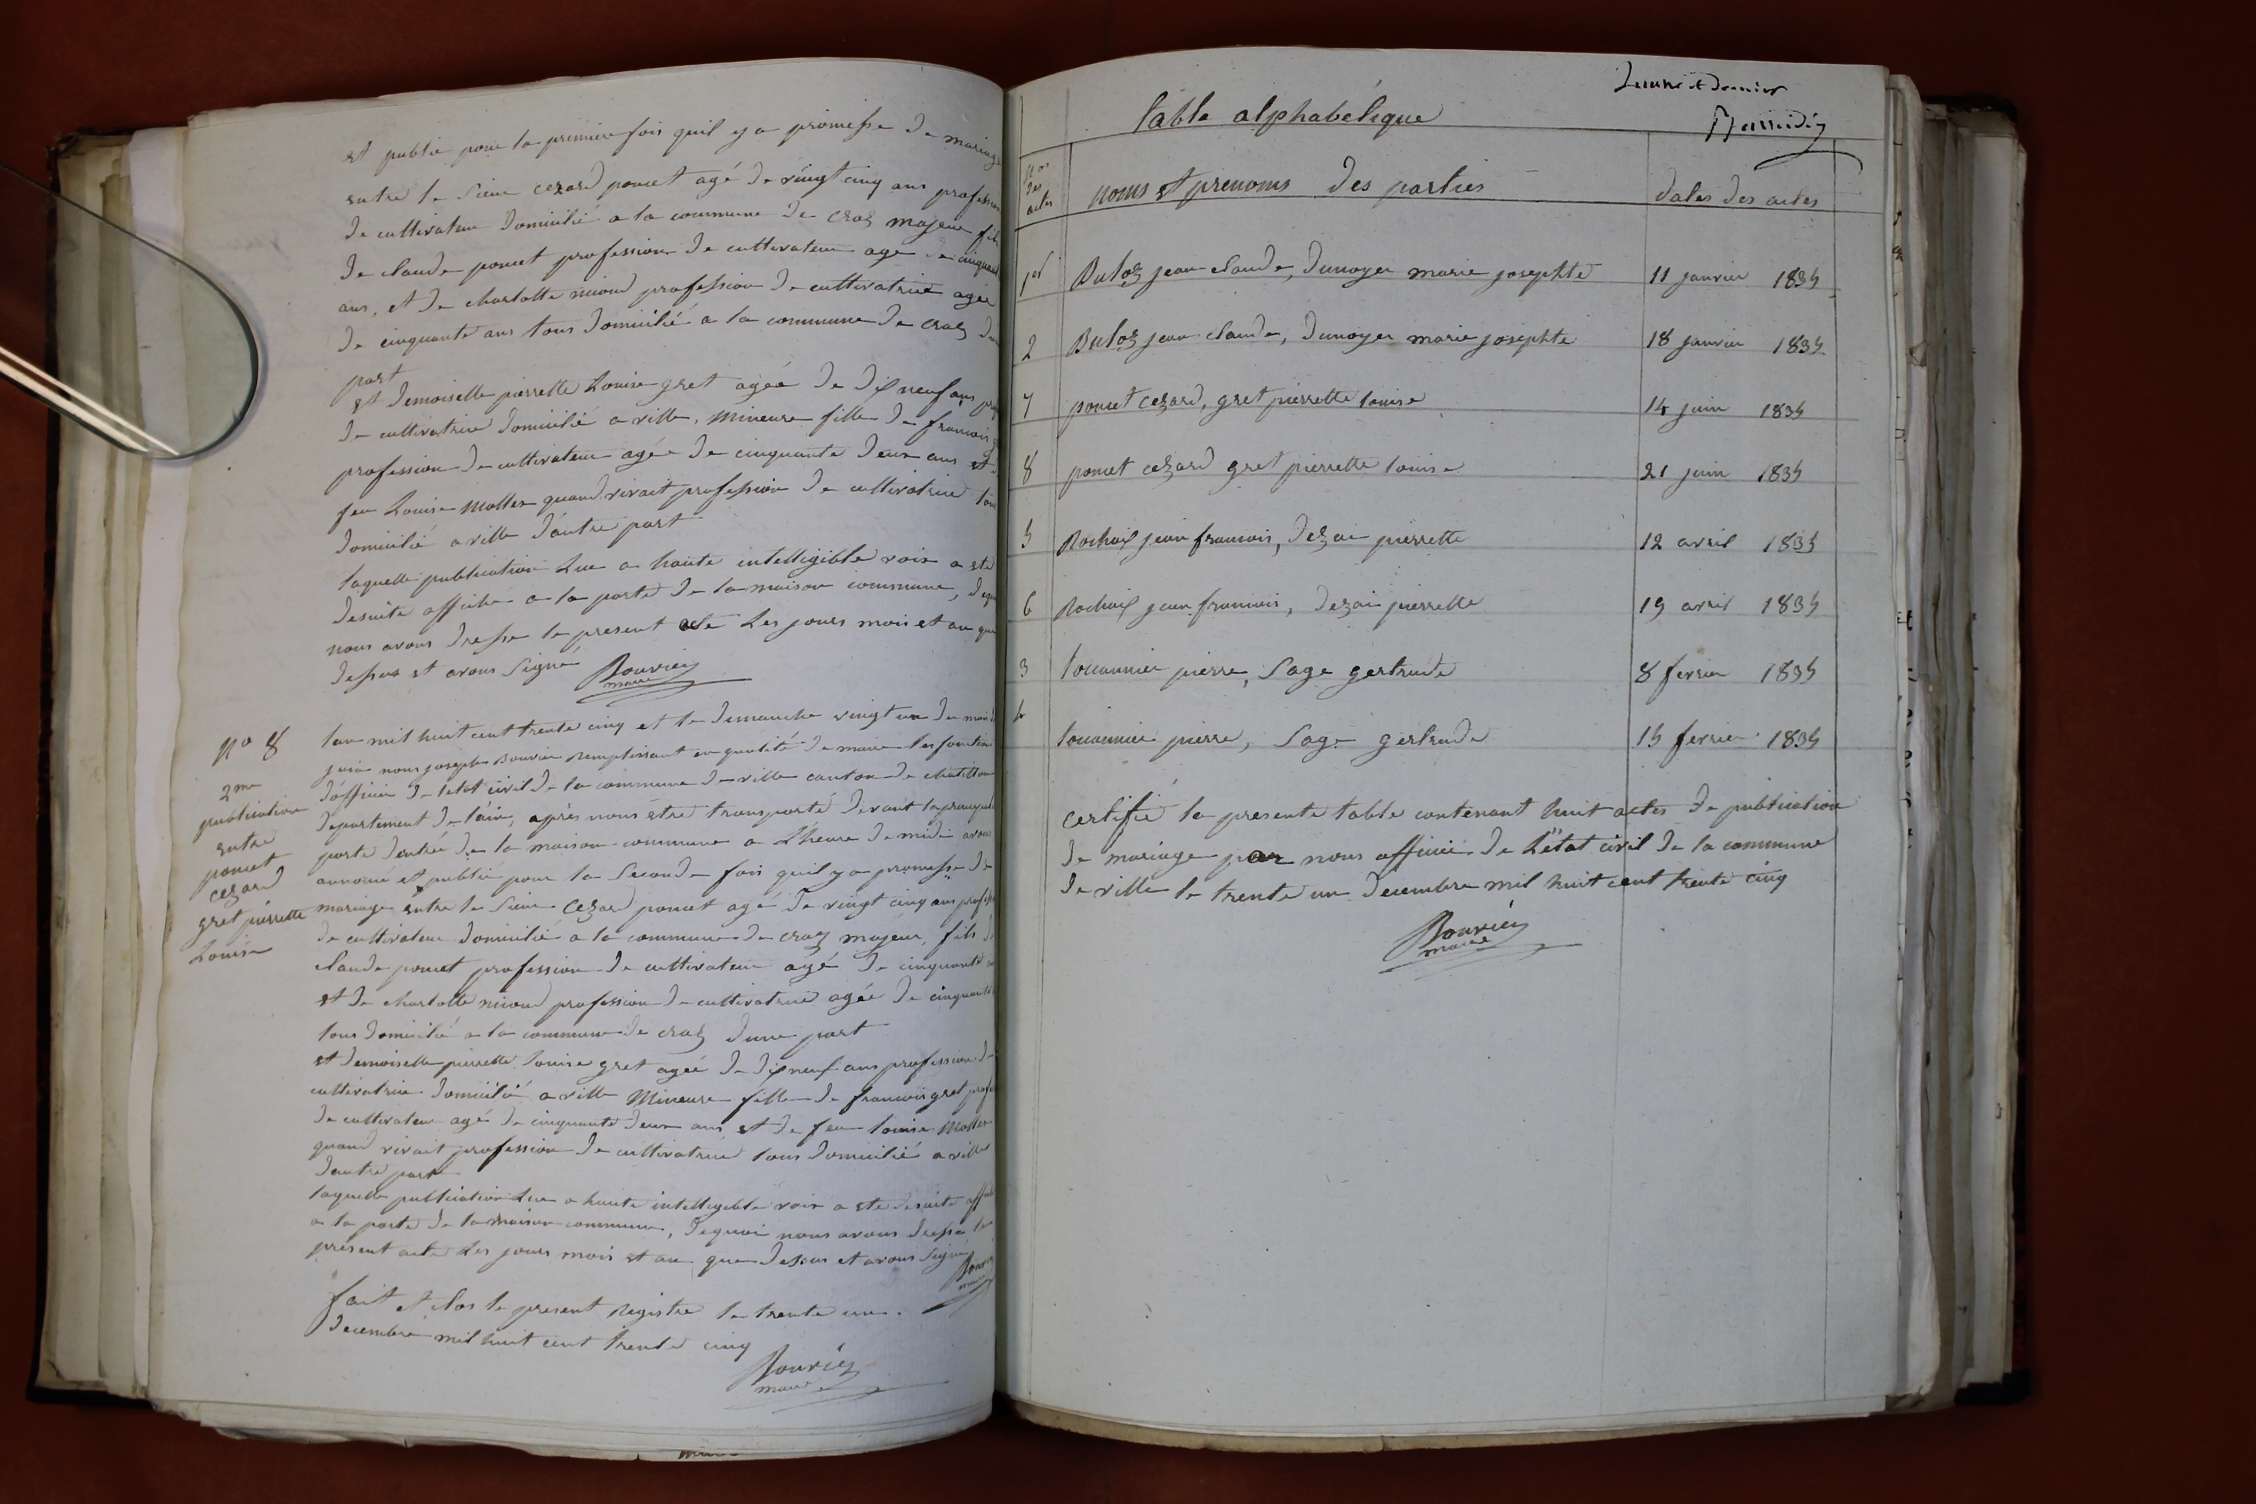 et publié pour la premiere fois quil y a promesse de mariage
entre le Sieur cezard poncet agé de vingt cinq ans profession
de cultivateur domicilié a la commune de craz majeur fils
de claude poncet profession de cultivateur agé de cinquante
ans, et de charlotte nicoud profession de cultivatrice agée
de cinquante ans tous domicilié a la commune de craz dune
part
et demoiselle pierrette Louise gret agée de dix neuf ans
de cultivatrice domicilié a ville, mineure fille de francois
profession de cultivateur agée de cinquante deux ans et de
feu Louise quand vivait profession de cultivatrice tous
domicilié a ville d'autre part
laquelle publication Lue a haute intelligible voix a eté
desuite affiché a la porte de la maison commune, dequoi
nous avons dressé le present acte Les jours mois et an que
dessus et avons Signé
Bouvier
maire
N° 8
2me
publication
entre
poncet
cezard
gret pierrette
Louise
lan mil huit cent trente cinq et le dimanche vingt un du mois de
juin nous joseph Bouvier remplissant en qualité de maire les fonction
d'officier de letat civil de la commune de ville canton de chatillon
departement de l'ain, après nous être transporté devant la principale
porte dentrée de la maison commune a L'heure de midi avons
annoncé et publié pour la Seconde fois quil y a promesse de
mariage entre le Sieur Cezard poncet agé de vingt cinq ans profession
de cultivateur domicilié a la commune de craz majeur, fils de
claude poncet profession de cultivateur agé de cinquante
et de charlotte nicoud profession de cultivatrice agée de cinquante
tous domicilié a la commune de craz dune part
et demoiselle pierrette Louise gret agée de dix neuf ans profession de
cultivatrice domicilié a ville Mineure fille de francois gret
de cultivateur agé de cinquante deux ans et de feu louise
quand vivait profession de cultivatrice tous domicilié a ville
dautre part
laquelle publication Lue a haute intelligible voix a eté desuite
a la porte de la maison commune, dequoi nous avons dressé le
présent acte Les jours mois et an que dessus et avons Signé
Bouvier
maire
fait et clos le present Registre le trente un
decembre mil huit cent trente cinq
Bouvier
maire
et dernier
table alphabétique
Nos des actes noms et prenoms des parties dates des actes
1er Butoz jean claude, dunoyer marie josephte 11 janvier 1835
2 Butoz jean claude, dunoyer marie josephte 18 janvier 1835
7 poncet cezard, gret pierrette louise 14 juin 1835
8 poncet cezard gret pierrette louise 21 juin 1835
5 Rochaix jean francois, dezai pierrette 12 avril 1835
6 Rochaix jean francois, dezai pierrette 19 avril 1835
3 pierre, Sage gertrude 8 fevrier 1835
4 pierre, Sage gertrude 15 fevrier 1835
certifié la presente table contenant huit actes de publication
de mariage par nous officier de L'état civil de la commune
de ville le trente un decembre mil huit cent trente cinq
Bouvier
maire